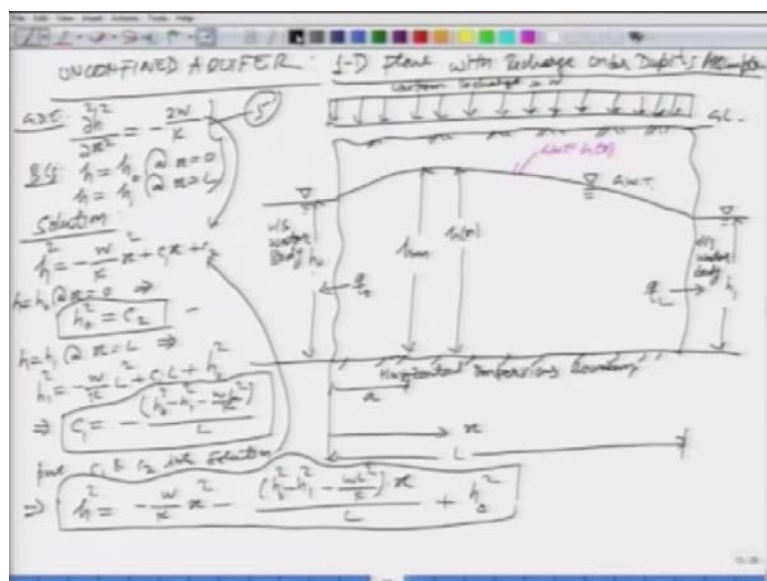 File Edit View Insert Actions Tools Help
UNCONFINED AQUIFER: 1-D flow with Recharge under Dupit's Assumption
G.D.E: ∂²h²/∂x² = -2w/K 5
B.C: h = h₀ @ x=0
h = h₁ @ x=L
Solution:
h² = -w/K x² + C₁x + C₂
h=h₀ @ x=0 ⇒
h₀² = C₂
h=h₁ @ x=L ⇒
h₁² = -w/K L² + C₁L + h₀²
⇒ C₁ = -(h₀²-h₁²-wL²/K)/L
put C₁ & C₂ into solution
⇒ h² = -w/K x² - (h₀²-h₁²-wL²/K)·x/L + h₀²
uniform recharge = w
G.L.
G.W.T h(x)
G.W.T.
u/s water body h₀
hm
h(x)
d/s water body h₁
q₀
q_L
Horizontal Impervious Boundary
a
x
L